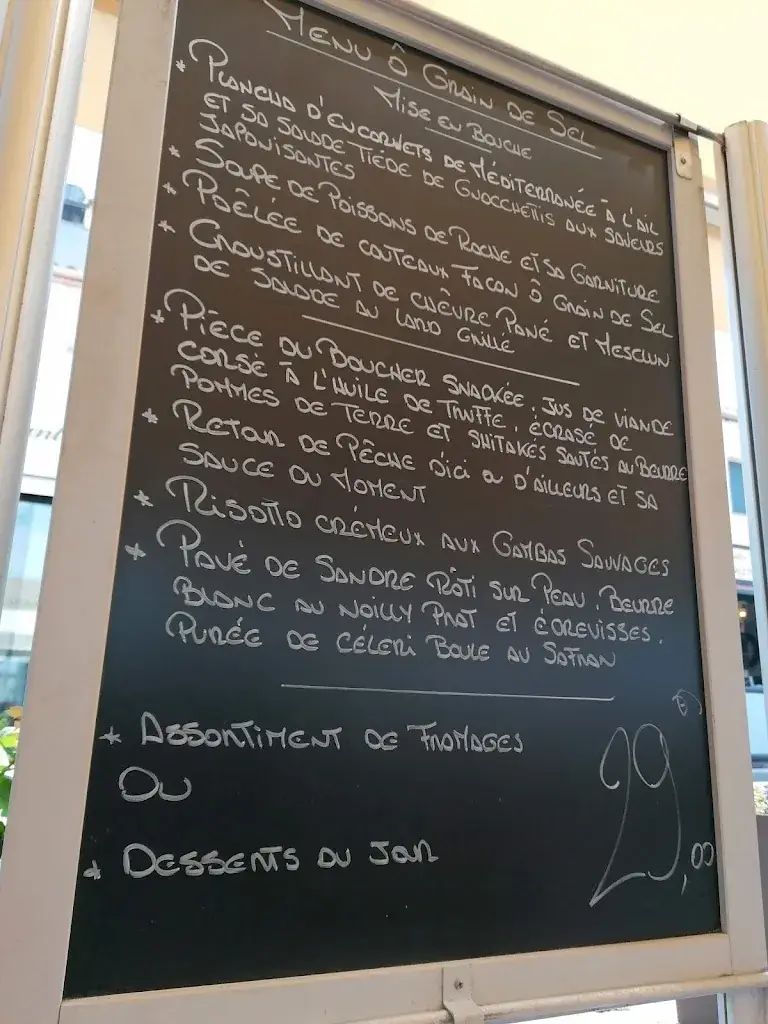 MENU Ô GRAIN DE SEL
MISE EN BOUCHE
* PLANCHA D'ENCORNETS DE MÉDITERRANÉE À L'AIL
ET SA SALADE TIÈDE DE GNOCCHETTIS AUX SAVEURS
JAPONISANTES
* SOUPE DE POISSONS DE ROCHE ET SA GARNITURE
* POÊLÉE DE COUTEAUX FAÇON Ô GRAIN DE SEL
* CROUSTILLANT DE CHÈVRE PANÉ ET MESCLUN
DE SALADE AU LARD GRILLÉ
* PIÈCE DU BOUCHER SNACKÉE, JUS DE VIANDE
CORSÉ À L'HUILE DE TRUFFE, ÉCRASÉ DE
POMMES DE TERRE ET SHITAKÉS SAUTÉS AU BEURRE
* RETOUR DE PÊCHE D'ICI OU D'AILLEURS ET SA
SAUCE DU MOMENT
* RISOTTO CRÉMEUX AUX GAMBAS SAUVAGES
* PAVÉ DE SANDRE RÔTI SUR PEAU, BEURRE
BLANC AU NOILLY PRAT ET ÉCREVISSES,
PURÉE DE CÉLERI BOULE AU SAFRAN
* ASSORTIMENT DE FROMAGES
OU
* DESSERTS DU JOUR
29,00